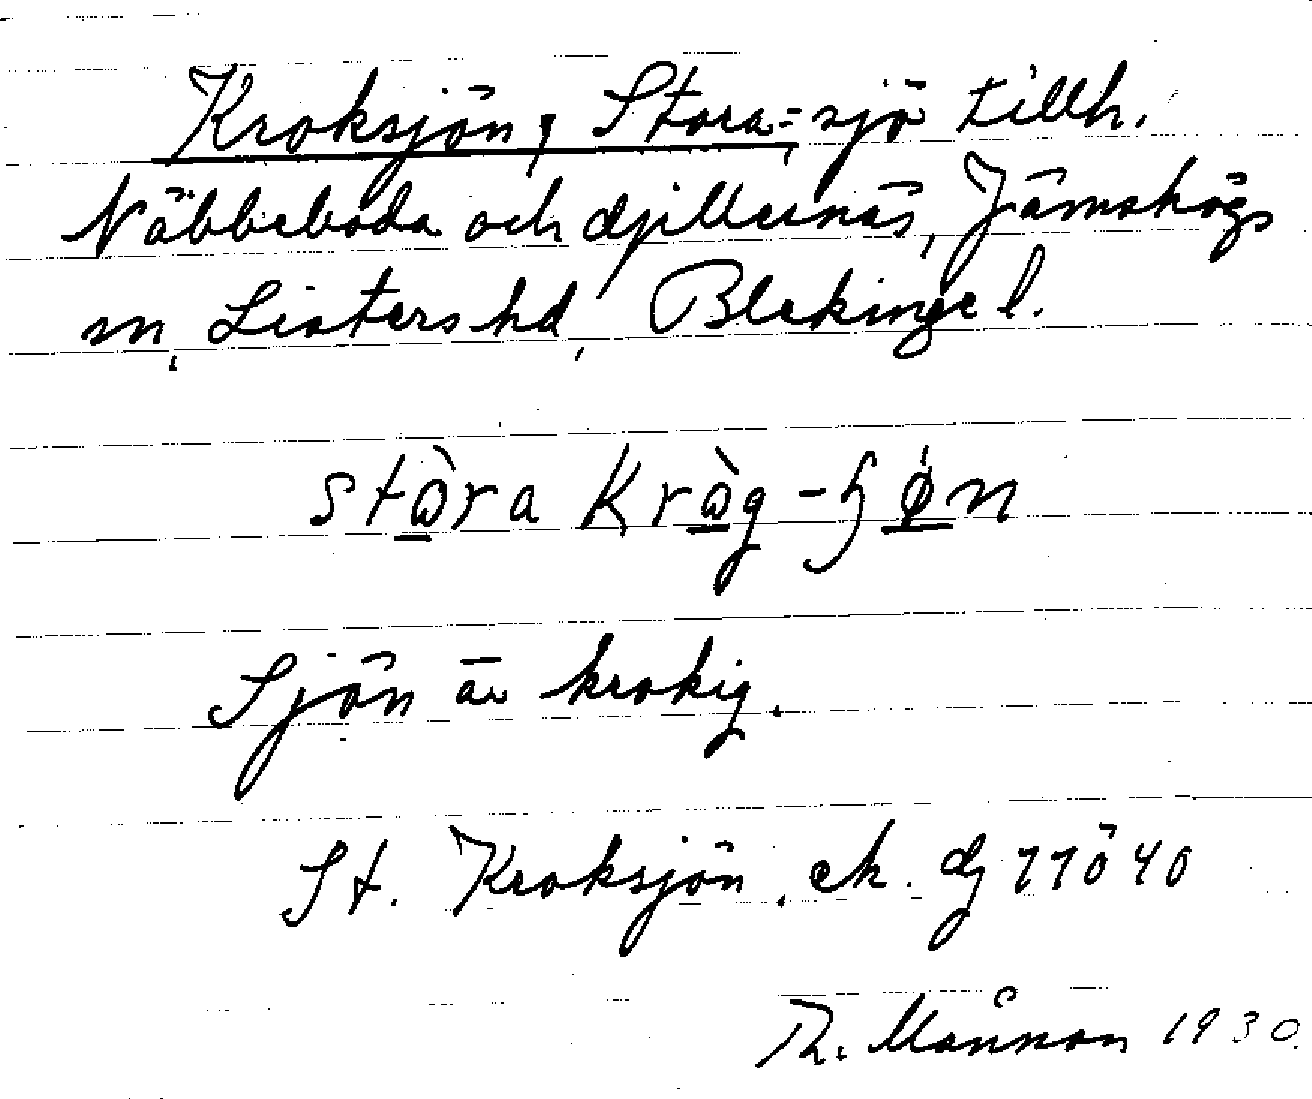 Kroksjön, Stora = sjö tillh.
Näbbeboda och Djillernäs, Jämshögs
sn, Listers hd, Blekinge l.
stòra Kròg-ɧøn
Sjön är krokig.
St. Kroksjön, ek.
Th. Månson 1930.